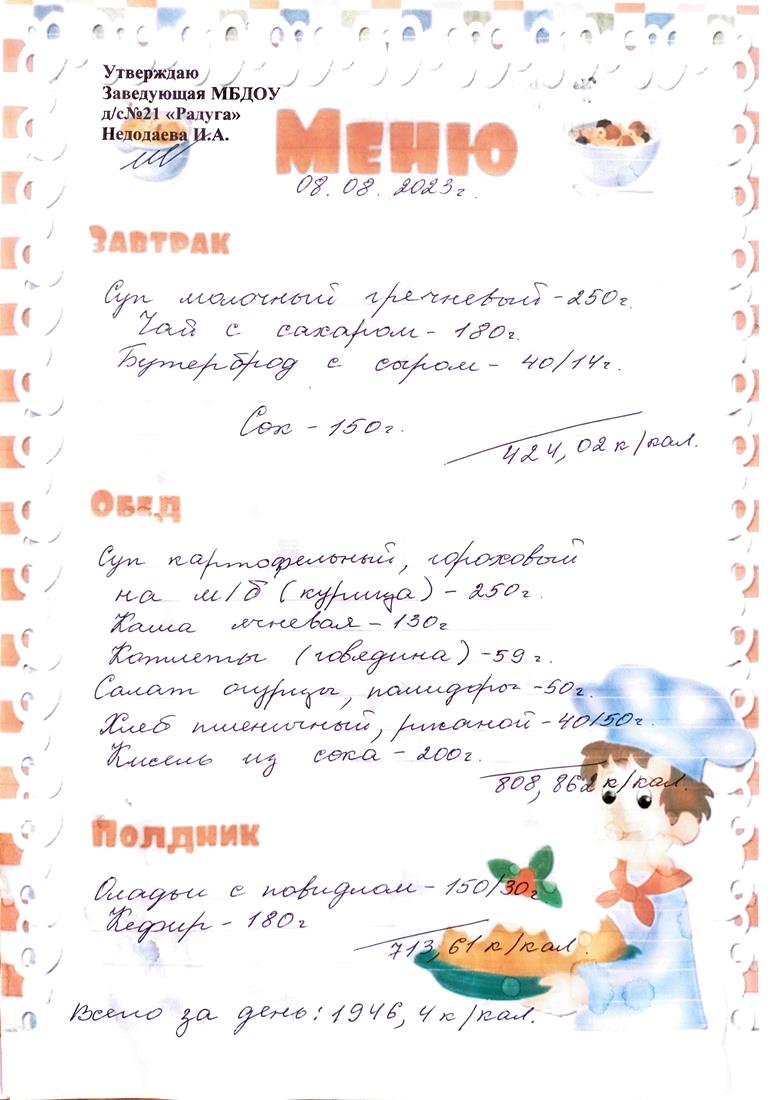 Утверждаю
Заведующая МБДОУ
д/с№21 «Радуга»
Недодаева И.А.
Меню
08.08.2023г.
Завтрак
Суп молочный гречневый - 250г.
Чай с сахаром - 180г.
Бутерброд с сыром - 40/14г.
Сок - 150г.
424,02 к/кал.
Обед
Суп картофельный, гороховый
на м/б (курица) - 250г.
Каша ячневая - 130г
Котлеты (говядина) - 59г.
Салат огурцы, помидоры - 50г.
Хлеб пшеничный, ржаной - 40/50г.
Кисель из сока - 200г.
808,862 к/кал.
Полдник
Оладьи с повидлом - 150/30г
Кефир - 180г
713,61 к/кал.
Всего за день: 1946,4 к/кал.